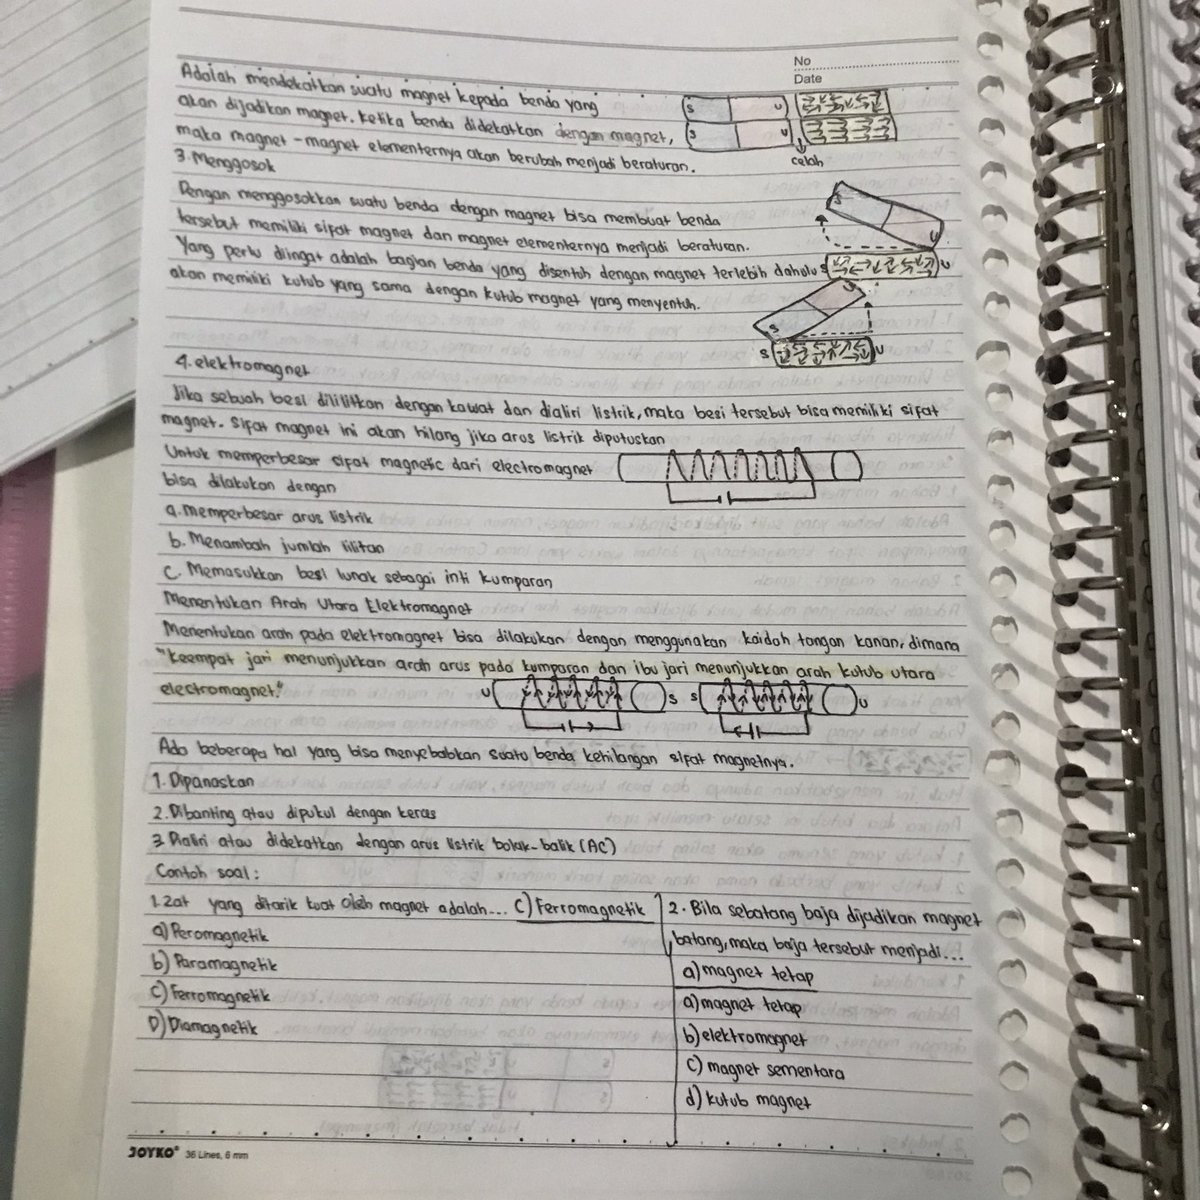 No
Date
Adalah mendekatkan suatu magnet kepada benda yang
akan dijadikan magnet. Ketika benda didekatkan dengan magnet,
maka magnet-magnet elementernya akan berubah menjadi beraturan.
S U
S U
celah
3. Menggosok
Dengan menggosokkan suatu benda dengan magnet bisa membuat benda
tersebut memiliki sifat magnet dan magnet elementernya menjadi beraturan.
Yang perlu diingat adalah bagian benda yang disentuh dengan magnet terlebih dahulu
akan memiliki kutub yang sama dengan kutub magnet yang menyentuh.
S U
S U
S U
S U
4. elektromagnet
Jika sebuah besi dililitkan dengan kawat dan dialiri listrik, maka besi tersebut bisa memiliki sifat
magnet. Sifat magnet ini akan hilang jika arus listrik diputuskan
Untuk memperbesar sifat magnetic dari electromagnet
bisa dilakukan dengan
a. Memperbesar arus listrik
b. Menambah jumlah lilitan
C. Memasukkan besi lunak sebagai inti kumparan
Menentukan Arah Utara Elektromagnet
Menentukan arah pada elektromagnet bisa dilakukan dengan menggunakan kaidah tangan kanan, dimana
"Keempat jari menunjukkan arah arus pada kumparan dan ibu jari menunjukkan arah kutub utara
electromagnet."
U S S U
Ada beberapa hal yang bisa menyebabkan suatu benda kehilangan sifat magnetnya.
1. Dipanaskan
2. Dibanting atau dipukul dengan keras
3. Dialiri atau didekatkan dengan arus listrik bolak-balik (AC)
Contoh soal:
1. Zat yang ditarik kuat oleh magnet adalah... C) Ferromagnetik
a) Peromagnetik
b) Paramagnetik
C) Ferromagnetik
D) Diamagnetik
2. Bila sebatang baja dijadikan magnet
batang, maka baja tersebut menjadi...
a) magnet tetap
a) magnet tetap
b) elektromagnet
C) magnet sementara
d) kutub magnet
JOYKO® 36 Lines, 6 mm